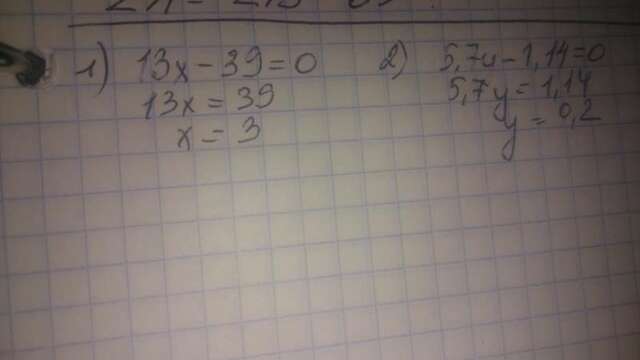 1) 13x - 39 = 0
13x = 39
x = 3
2) 5,7y - 1,14 = 0
5,7y = 1,14
y = 0,2